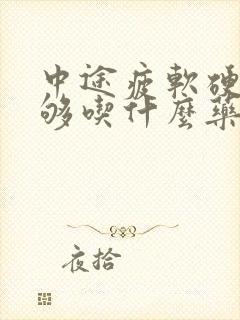 中途疲軟硬
够喫什麼藥
夜拾